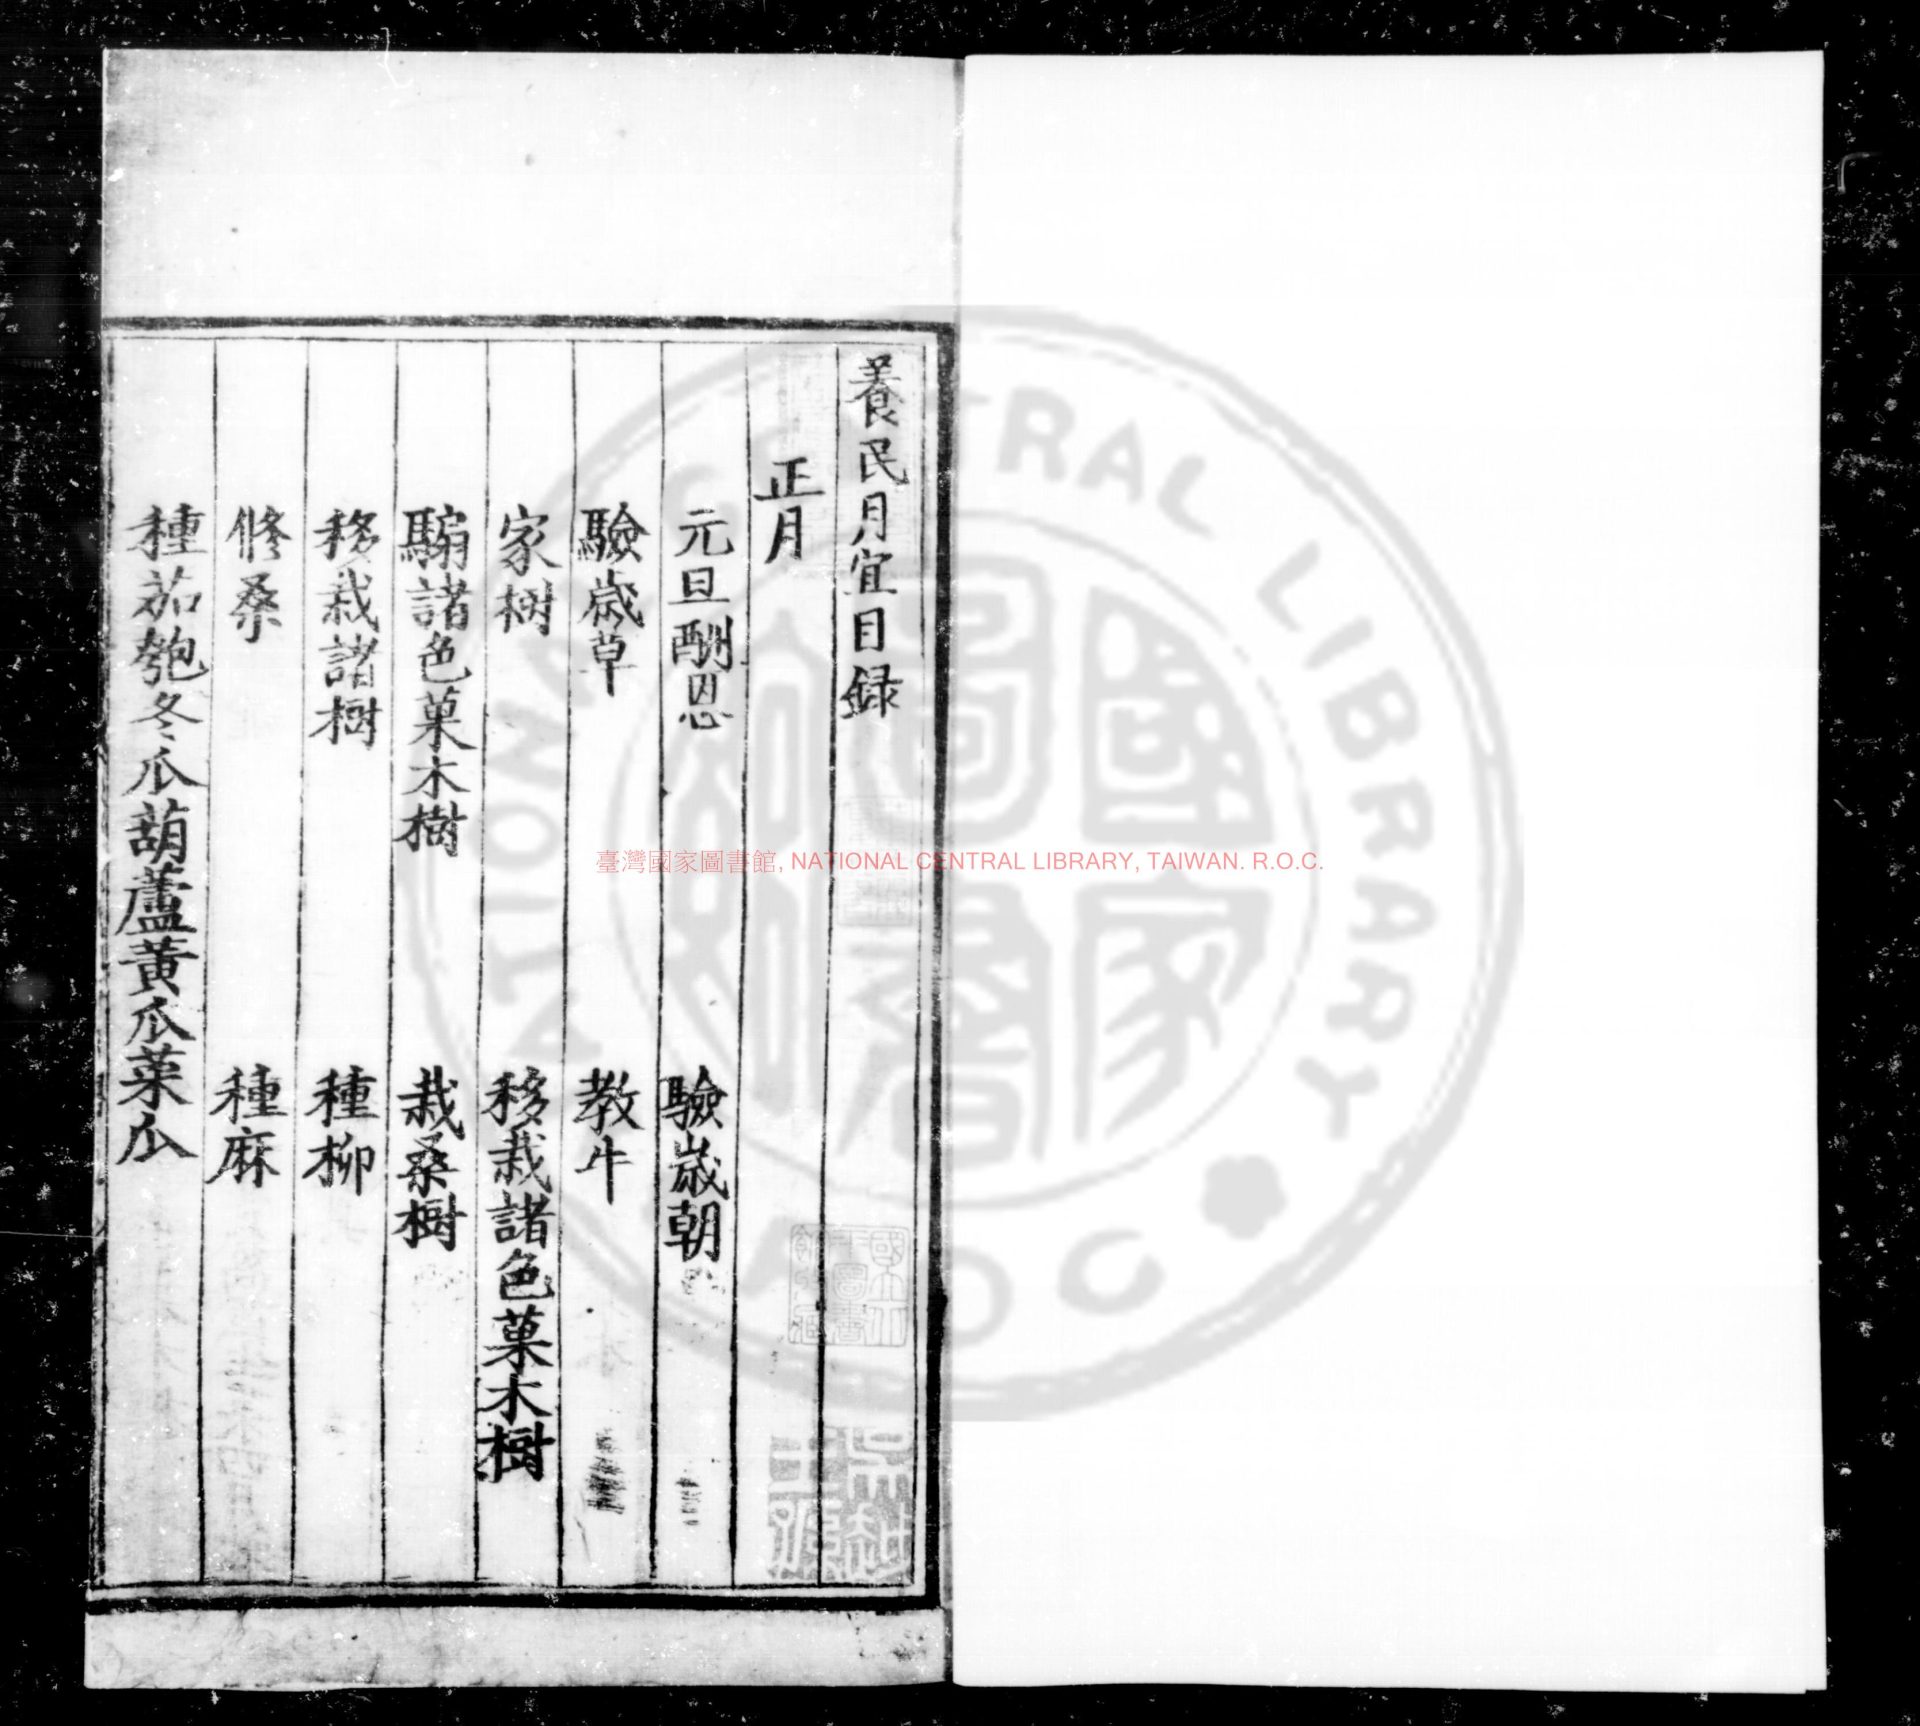 養民月宜目録
正月
元旦酬恩　驗歲朝
驗歲草　教牛
家樹　移栽諸色菓木樹
騸諸色菓木樹　栽桑樹
移栽諸樹　種柳
修桑　種麻
種茄匏冬瓜葫蘆黃瓜菜瓜
臺灣國家圖書館, NATIONAL CENTRAL LIBRARY, TAIWAN. R.O.C.